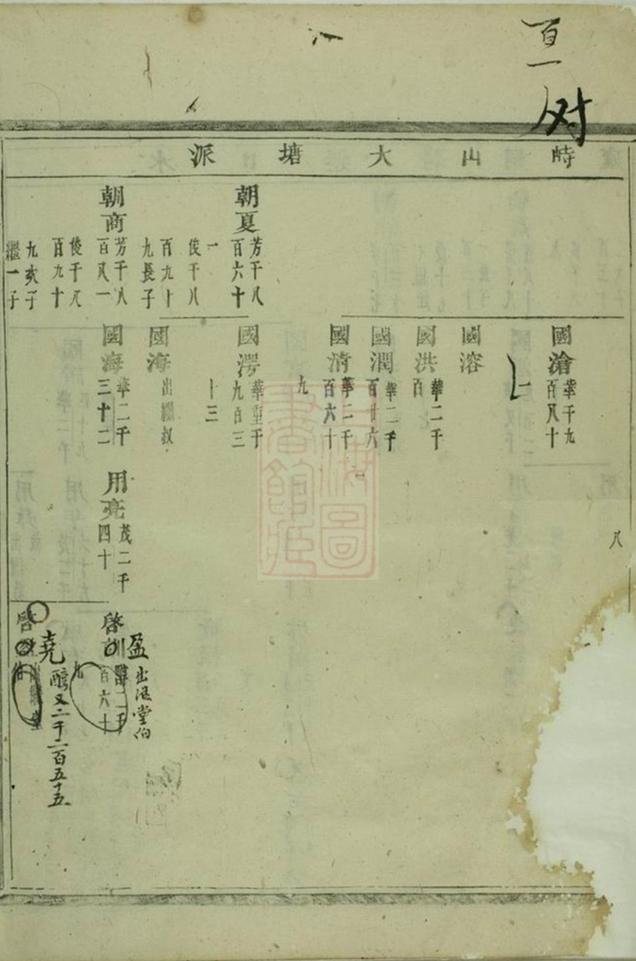 時山大塘派
國滄
華千九
百八十
一
國溶
國洪
華二千
百
國潤
華二千
百廿六
國清
華二千
百六十
九
朝夏
芳千八
百六十
一
國澪
華壹千
九百三
十三
俊千八
百九十
九長子
國海
出繼叔
朝商
芳千八
百八一
國海
華二千
三十二
用亮
茂二千
四十
啓訓
百六十
盈出滋堂伯
俊千八
百九十
九次子
繼一子
啓
堯
醇又二千二百五十五
八